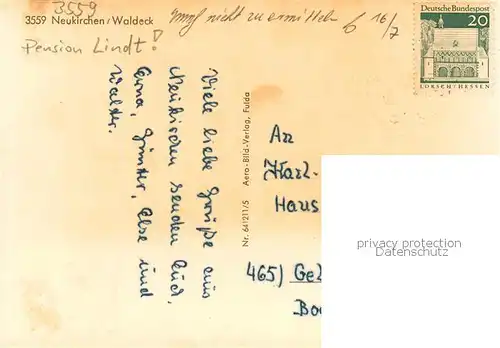 3559
3559 Neukirchen / Waldeck
Empf nicht zu ermitteln
6 16/7
Pension Lindt!
Deutsche Bundespost
20
LORSCH/HESSEN
Viele liebe Grüße aus
Neukirchen senden Euch,
Erna, Günther, Else und
Walter.
Nr. 64!211/5 Aero-Bild-Verlag, Fulda
An
Karl-
Haus
465) Gel
Bo
privacy protection
Datenschutz